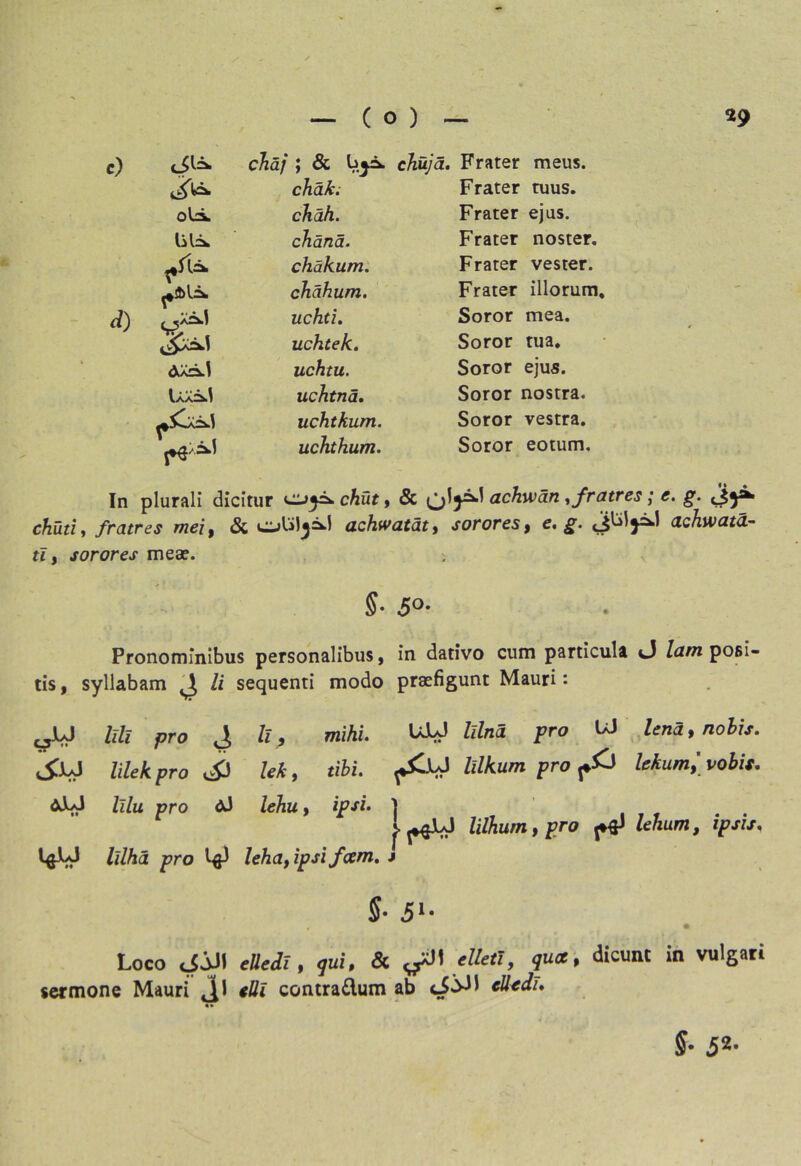 — ( o ) — 29
c) خاي chāj ; & خويا chūjā. Frater meus.
خاك chāk. Frater tuus.
خاه chāh. Frater ejus.
خانا chānā. Frater noster.
خاكم chākum. Frater vester.
خاهم chāhum. Frater illorum.
d) اختي uchti. Soror mea.
اختك uchtek. Soror tua.
اخته uchtu. Soror ejus.
اختنا uchtnā. Soror nostra.
اختكم uchtkum. Soror vestra.
اختهم uchthum. Soror eotum.
In plurali dicitur خوت chūt, & اخوان achwān, fratres ; e. g. خوتي
chūti, fratres mei, & اخواتات achwatāt, sorores, e. g. اخواتاتي achwatā-
tī, sorores meæ.
§. 50.
Pronominibus personalibus, in dativo cum particula ل lam posi-
tis, syllabam لي li sequenti modo præfigunt Mauri:
ليلي līlī pro لي lī, mihi. ليلنا līlnā pro لنا lenā, nobis.
ليلك līlek pro لك lek, tibi. ليلكم līlkum pro لكم lekum, vobis.
ليله līlu pro له lehu, ipsi.
ليلهم līlhum, pro لهم lehum, ipsis.
ليلها līlhā pro لها leha, ipsi fœm.
§. 51.
Loco الذي elledī, qui, & التي elletī, quæ, dicunt in vulgari
sermone Mauri الي ellī contractum ab الذي elledī.
§. 52.